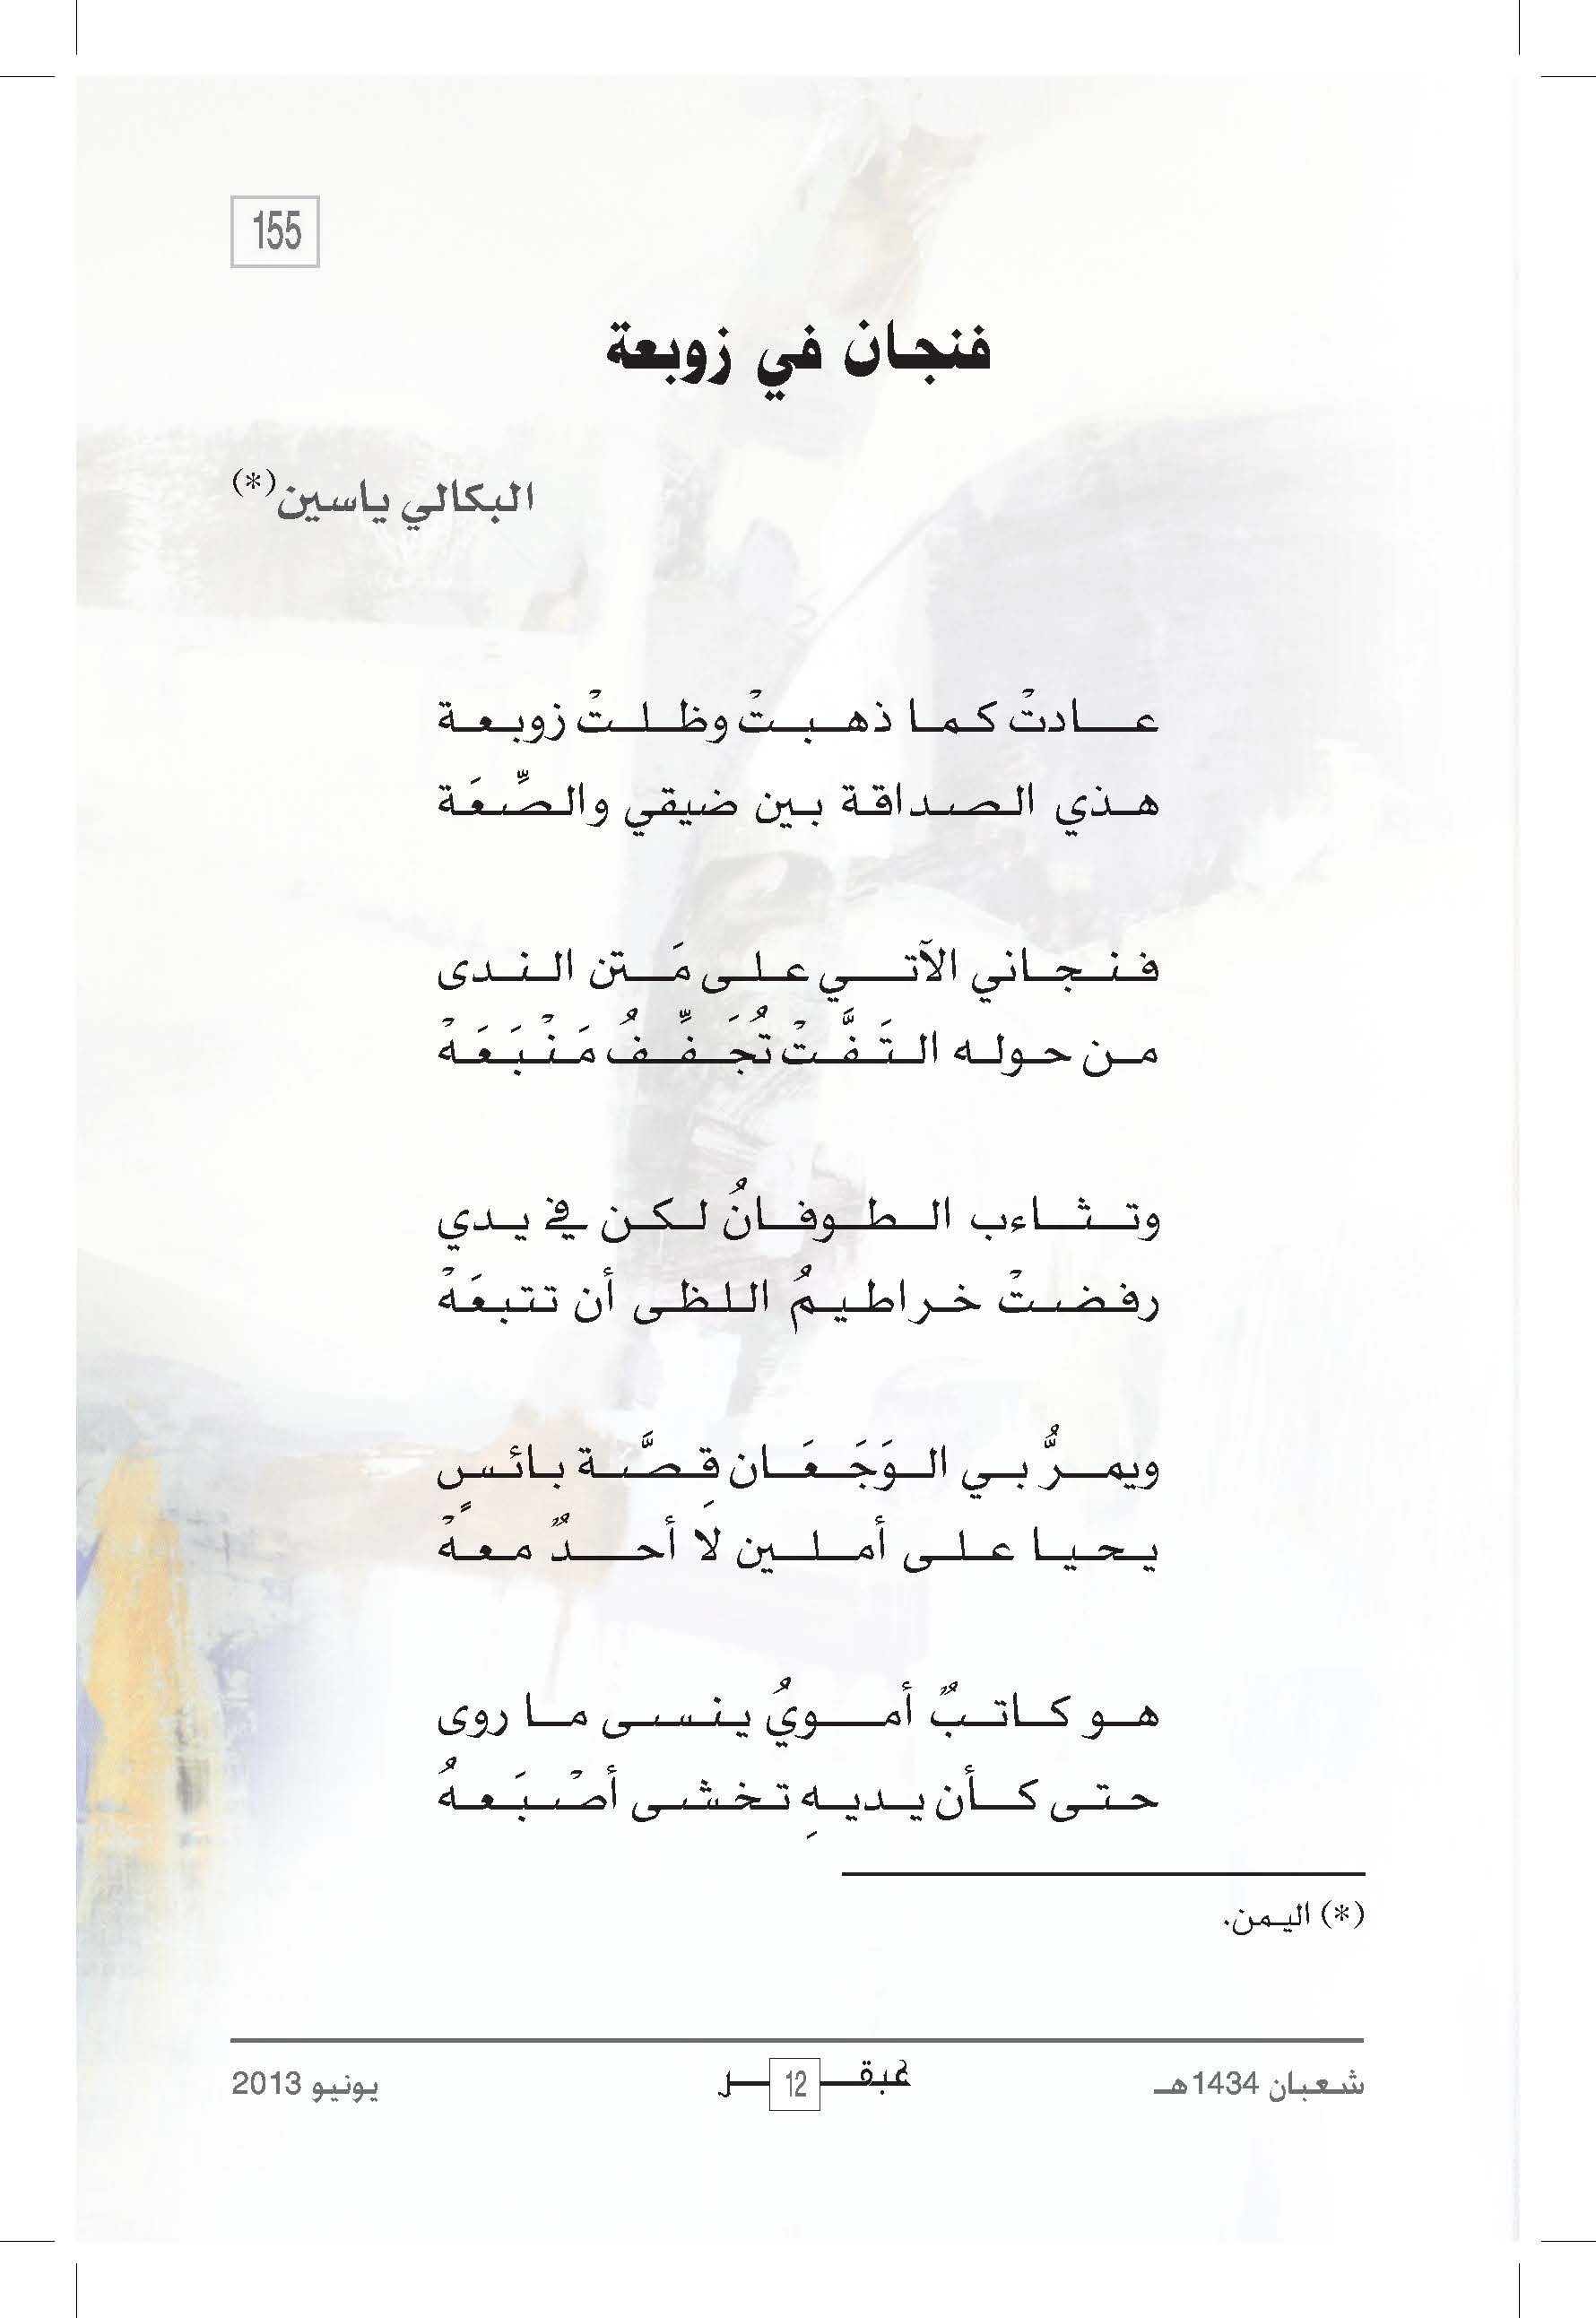 155
فنجان في زوبعة
البكالي ياسين(*)
عادتْ كما ذهبتْ وظلتْ زوبعة
هذي الصداقة بين ضيقي والصِّعَة
فنجاني الآتي على مَتن الندى
من حوله التَفَّتْ تُجَفِّفُ مَنْبَعَهْ
وتثاءب الطوفانُ لكن في يدي
رفضتْ خراطيمُ اللظى أن تتبعَهْ
ويمرُّ بي الوَجَعَان قِصَّة بائسٍ
يحيا على أملين لا أحدٌ معهْ
هو كاتبٌ أمويُ ينسى ما روى
حتى كأن يديهِ تخشى أصْبَعهُ
(*) اليمن.
شعبان 1434هـ
عبقـ 12 ـر
يونيو 2013